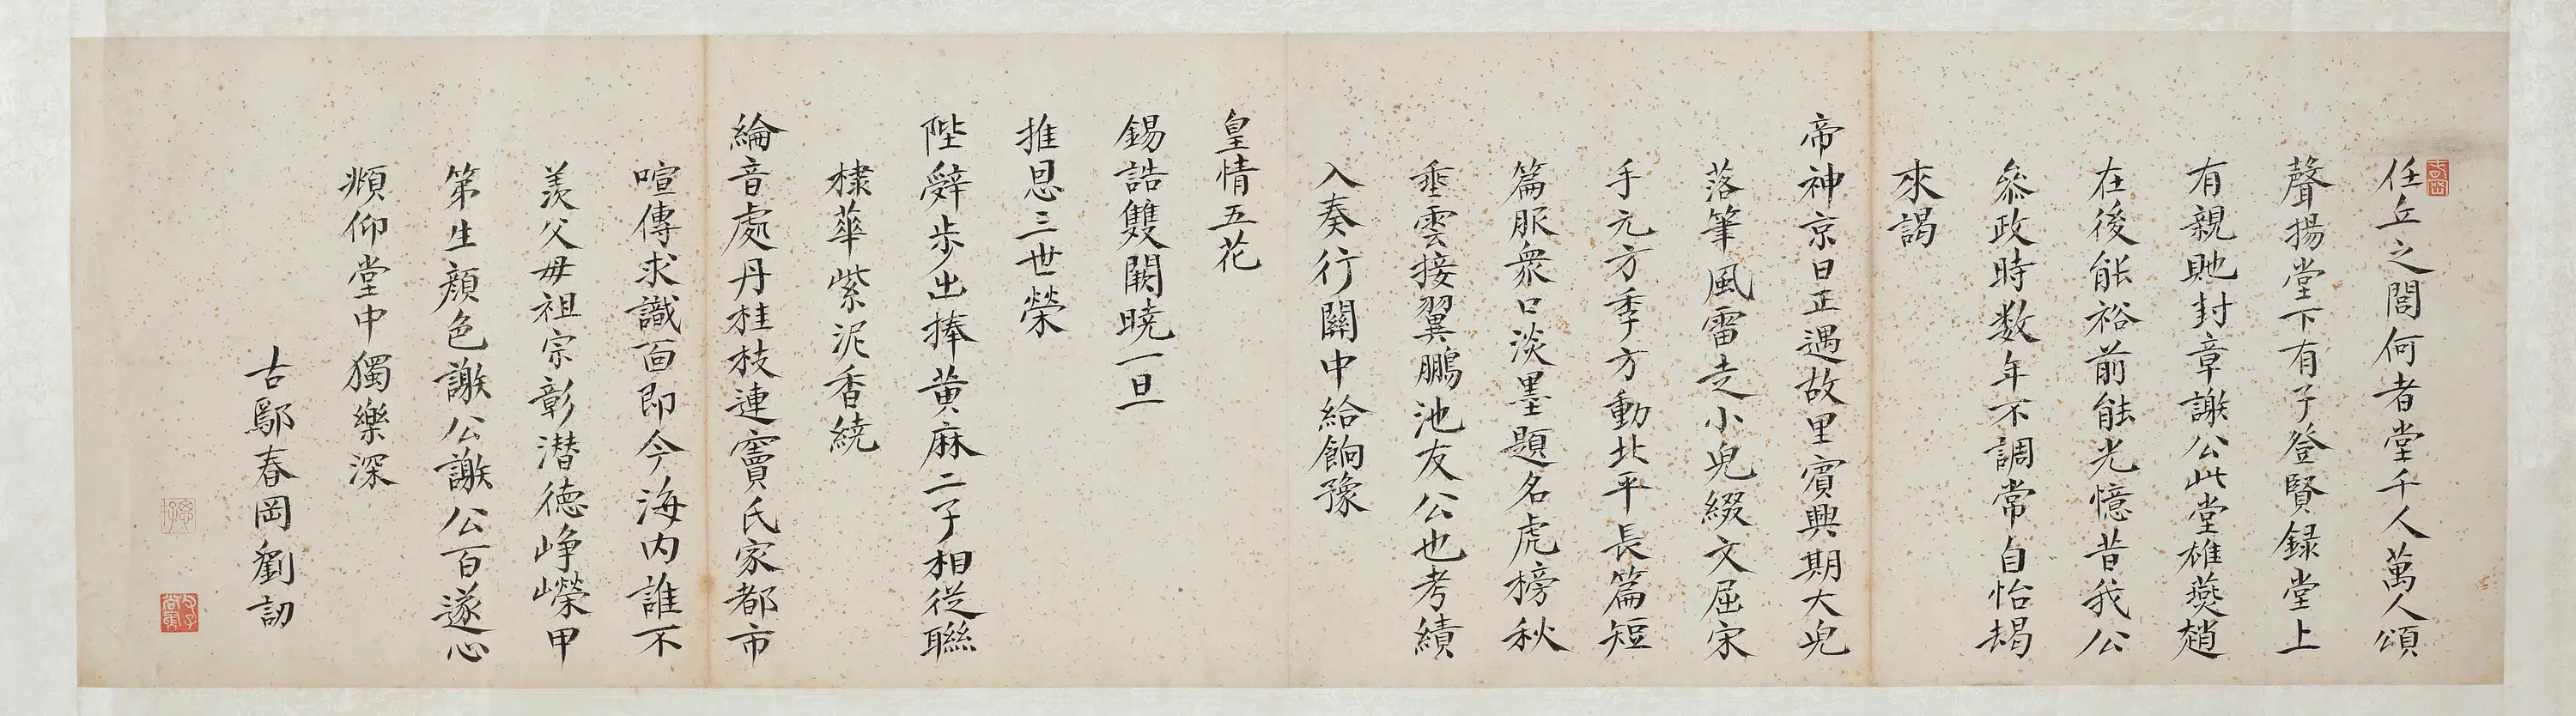 任丘之閭何者堂千人萬人頌
聲揚堂下有子登賢録堂上
有親貤封章謝公此堂雄燕趙
在後能裕前能光憶昔我公
叅政時数年不調常自怡朅
來謁
帝神京日正遇故里賓興期大兒
落筆風雷走小兒綴文屈宋
手元方季方動北平長篇短
篇服衆口淡墨題名虎榜秋
垂雲接翼鵬池友公也考績
入奏行關中給餉豫
皇情五花
錫誥雙闕曉一旦
推恩三世榮
陛辤步出捧黄麻二子相從聯
棣華紫泥香繞
綸音處丹桂枝連竇氏家都市
喧傳求識面即今海内誰不
羡父母祖宗彰潜德崢嶸甲
第生顔色謝公謝公百遂心
頫仰堂中獨樂深
古鄢春岡劉訒